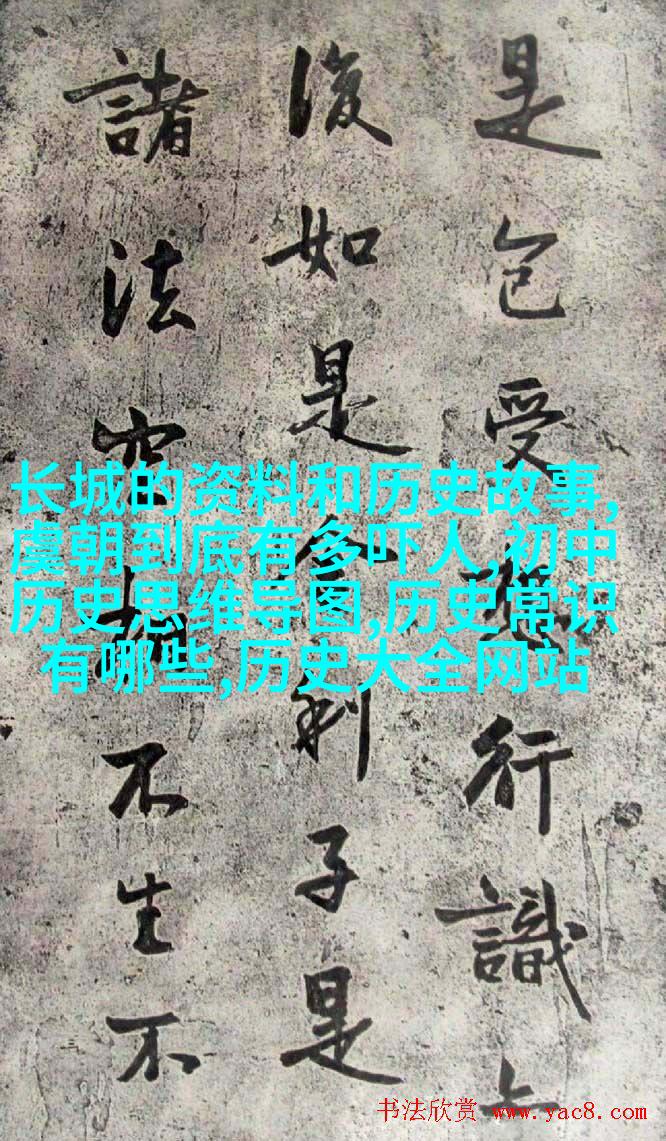 是色受想行識
復如是舍利子是
諸法空相不生不
长城的资料和历史故事,
虞朝到底有多吓人,初中
历史思维导图,历史常识
有哪些,历史大全网站
书法欣赏 www.yac8.com